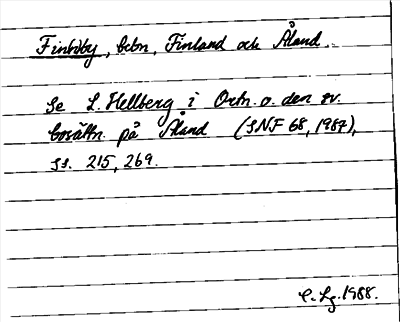 Finbby, bebn, Finland och Åland.
Se L. Hellberg i Ortn. o. den sv.
bosättn. på Åland (SNF 68, 1987),
ss. 215, 269.
C. Lg. 1988.